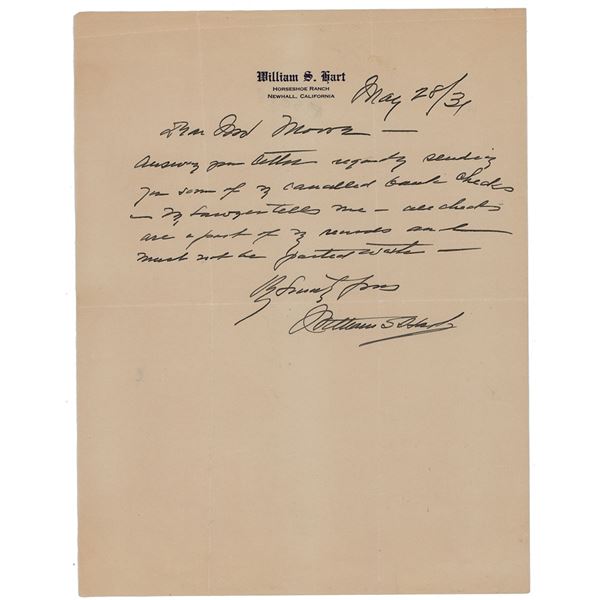 William S. Hart
HORSESHOE RANCH
NEWHALL, CALIFORNIA
May 28/31
Dear Mr Moore —
Answering your letter regarding sending
you some of my cancelled bank checks
— My lawyer tells me — all checks
are a part of my records and
must not be parted with —
Sincerely Yours
William S Hart